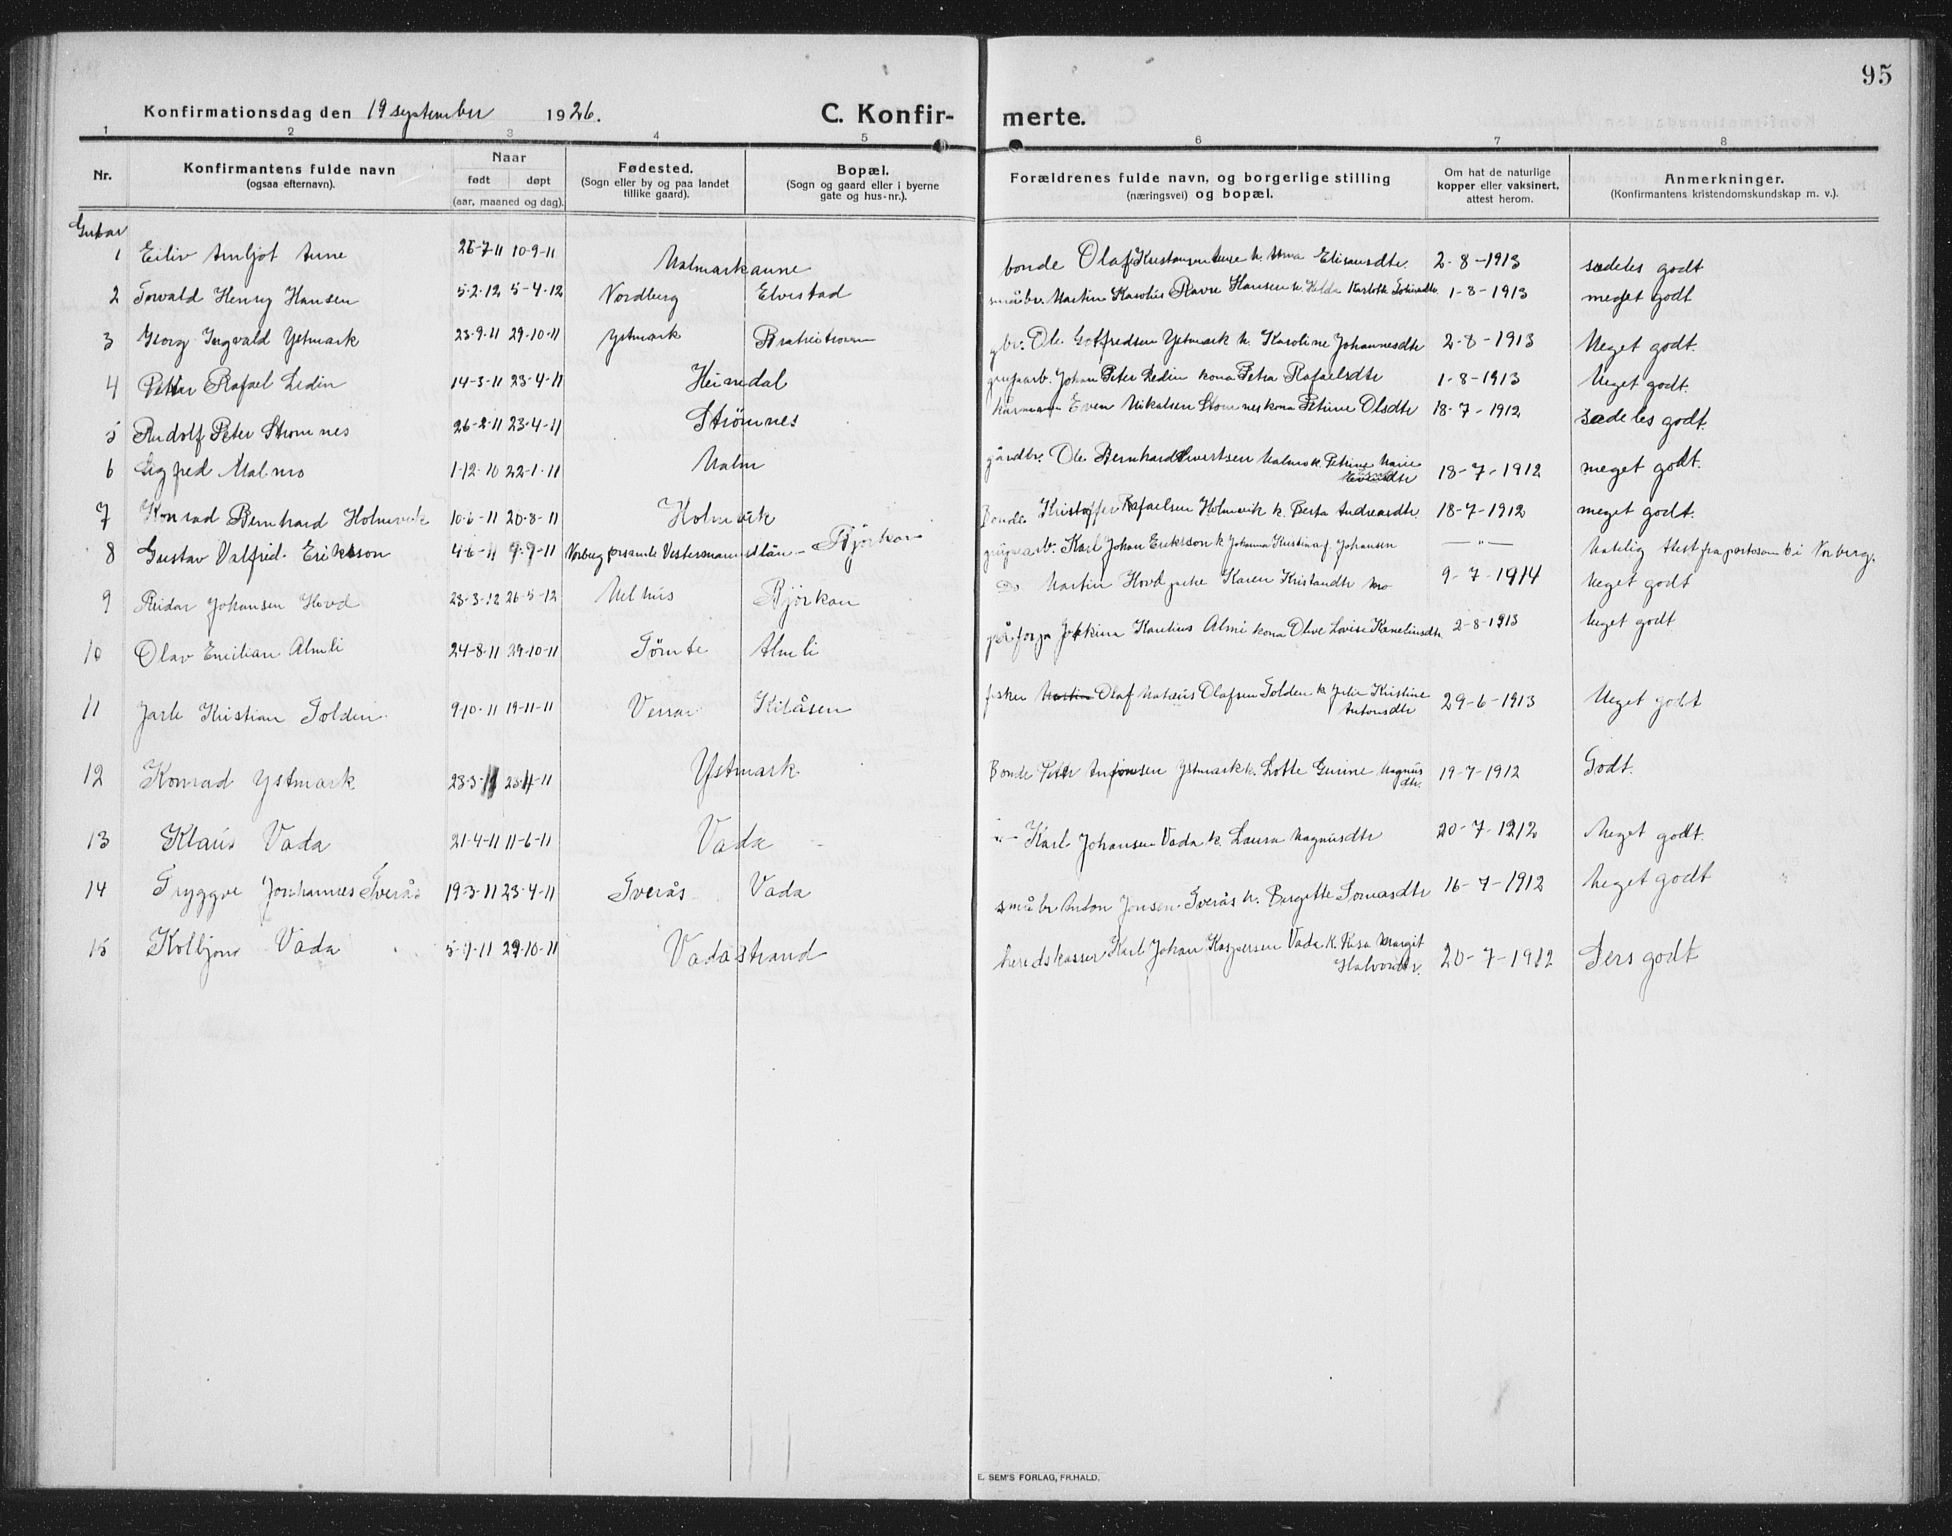 95
Konfirmationsdag den 19 september 1926. C. Konfir- merte.
1 2 3 4 5 6 7 8
Nr. Konfirmantens fulde navn (ogsaa efternavn). Naar født døpt (aar, maaned og dag). Fødested. (Sogn eller by og paa landet tillike gaard). Bopæl. (Sogn og gaard eller i byerne gate og hus-nr.). Forældrenes fulde navn, og borgerlige stilling (næringsvei) og bopæl. Om hat de naturlige kopper eller vaksinert, attest herom. Anmerkninger. (Konfirmantens kristendomskundskap m. v.).
Guttar
1 Eiliv Arnljot Aune 26-7-11 10-9-11 Malmarkaune bonde Olaf Kristansen Aune k. Anna Elisausdtr. 2-8-1913 særdeles godt
2 Torvald Henry Hansen 5-2-12 5-4-12 Nordberg Elvestad småbr. Martin Karolius Ravn Hansen k. Hilda Karlotte 1-8-1913 meget godt
3 Georg Ingvald Ystmark 23-9-11 29-10-11 Ystmark gbr. Ole Gotfredsen Ystmark k. Karoline Johannesdtr 2-8-1913 Meget godt.
4 Petter Rafael Ledin 14-3-11 23-4-11 Heimdal grufearb. Johan Peter Ledin kona Petra Rafaelsdtr 1-8-1913 Meget godt.
5 Rudolf Peter Strømnes 26-2-11 23-4-11 Strømnes Even Nikolsen Strømnes kona Petrine Olsdtr 18-7-1912 særdeles godt.
6 Sigfred Malmo 1-12-10 22-1-11 Malm gårdbr. Ole Bernhard Sivertsen Malmo k. Petrine Marie 18-7-1912 meget godt.
7 Konrad Bernhard Holmvik 10-6-11 20-8-11 Holmvik Bonde Kristoffer Rafaelsen Holmvik k. Berta Andreasdtr. 18-7-1912 meget godt.
8 Gustav Valfrid Eriksson 4-6-11 9-7-11 Norberg forsamle Vestermannslän - Bjørkan grupearb. Karl Johan Eriksson k. Johanna Kristina f. Johansen —"— Natelig Attest fra pastorsemb i Norberg.
9 Reidar Johansen Hovd 23-3-12 26-5-12 Melhus Bjørkan Do Martin Hovd Karen Kristansdtr 9-7-1914 Meget godt
10 Olav Emilian Almli 24-8-11 29-10-11 Tømte Almli Kantius Almli kona Olive Lovise Kornelinsdtr 2-8-1913 Meget godt
11 Jarle Kristian Tolden 9-10-11 19-11-11 Verran Kilåsen fisker Martin Olaf Mateus Olafsen Tolden k. Julie Kristine Antonsdtr 29-6-1913 Meget godt
12 Konrad Ystmark 23-3-11 23-4-11 Ystmark Bonde Peter Antonsen Ystmark k. Lotte Gurine Magnusdtr. 19-7-1912 Godt.
13 Klaus Vada 21-4-11 11-6-11 Vada —"— Karl Johansen Vada k. Laura Magnusdtr 20-7-1912 Meget godt.
14 Tryggve Johannes Tverås 19-3-11 23-4-11 Tverås Vada småbr Anton Jonsen Tverås k. Bergitte Tomasdtr 16-7-1912 Meget godt
15 Kolbjørn Vada 5-9-11 29-10-11 Vadastrand heredskasser Karl Johan Kaspersen Vada k. Risa Margit Halvordtr. 20-7-1912 Sers godt
E. SEM'S FORLAG, FR.HALD.